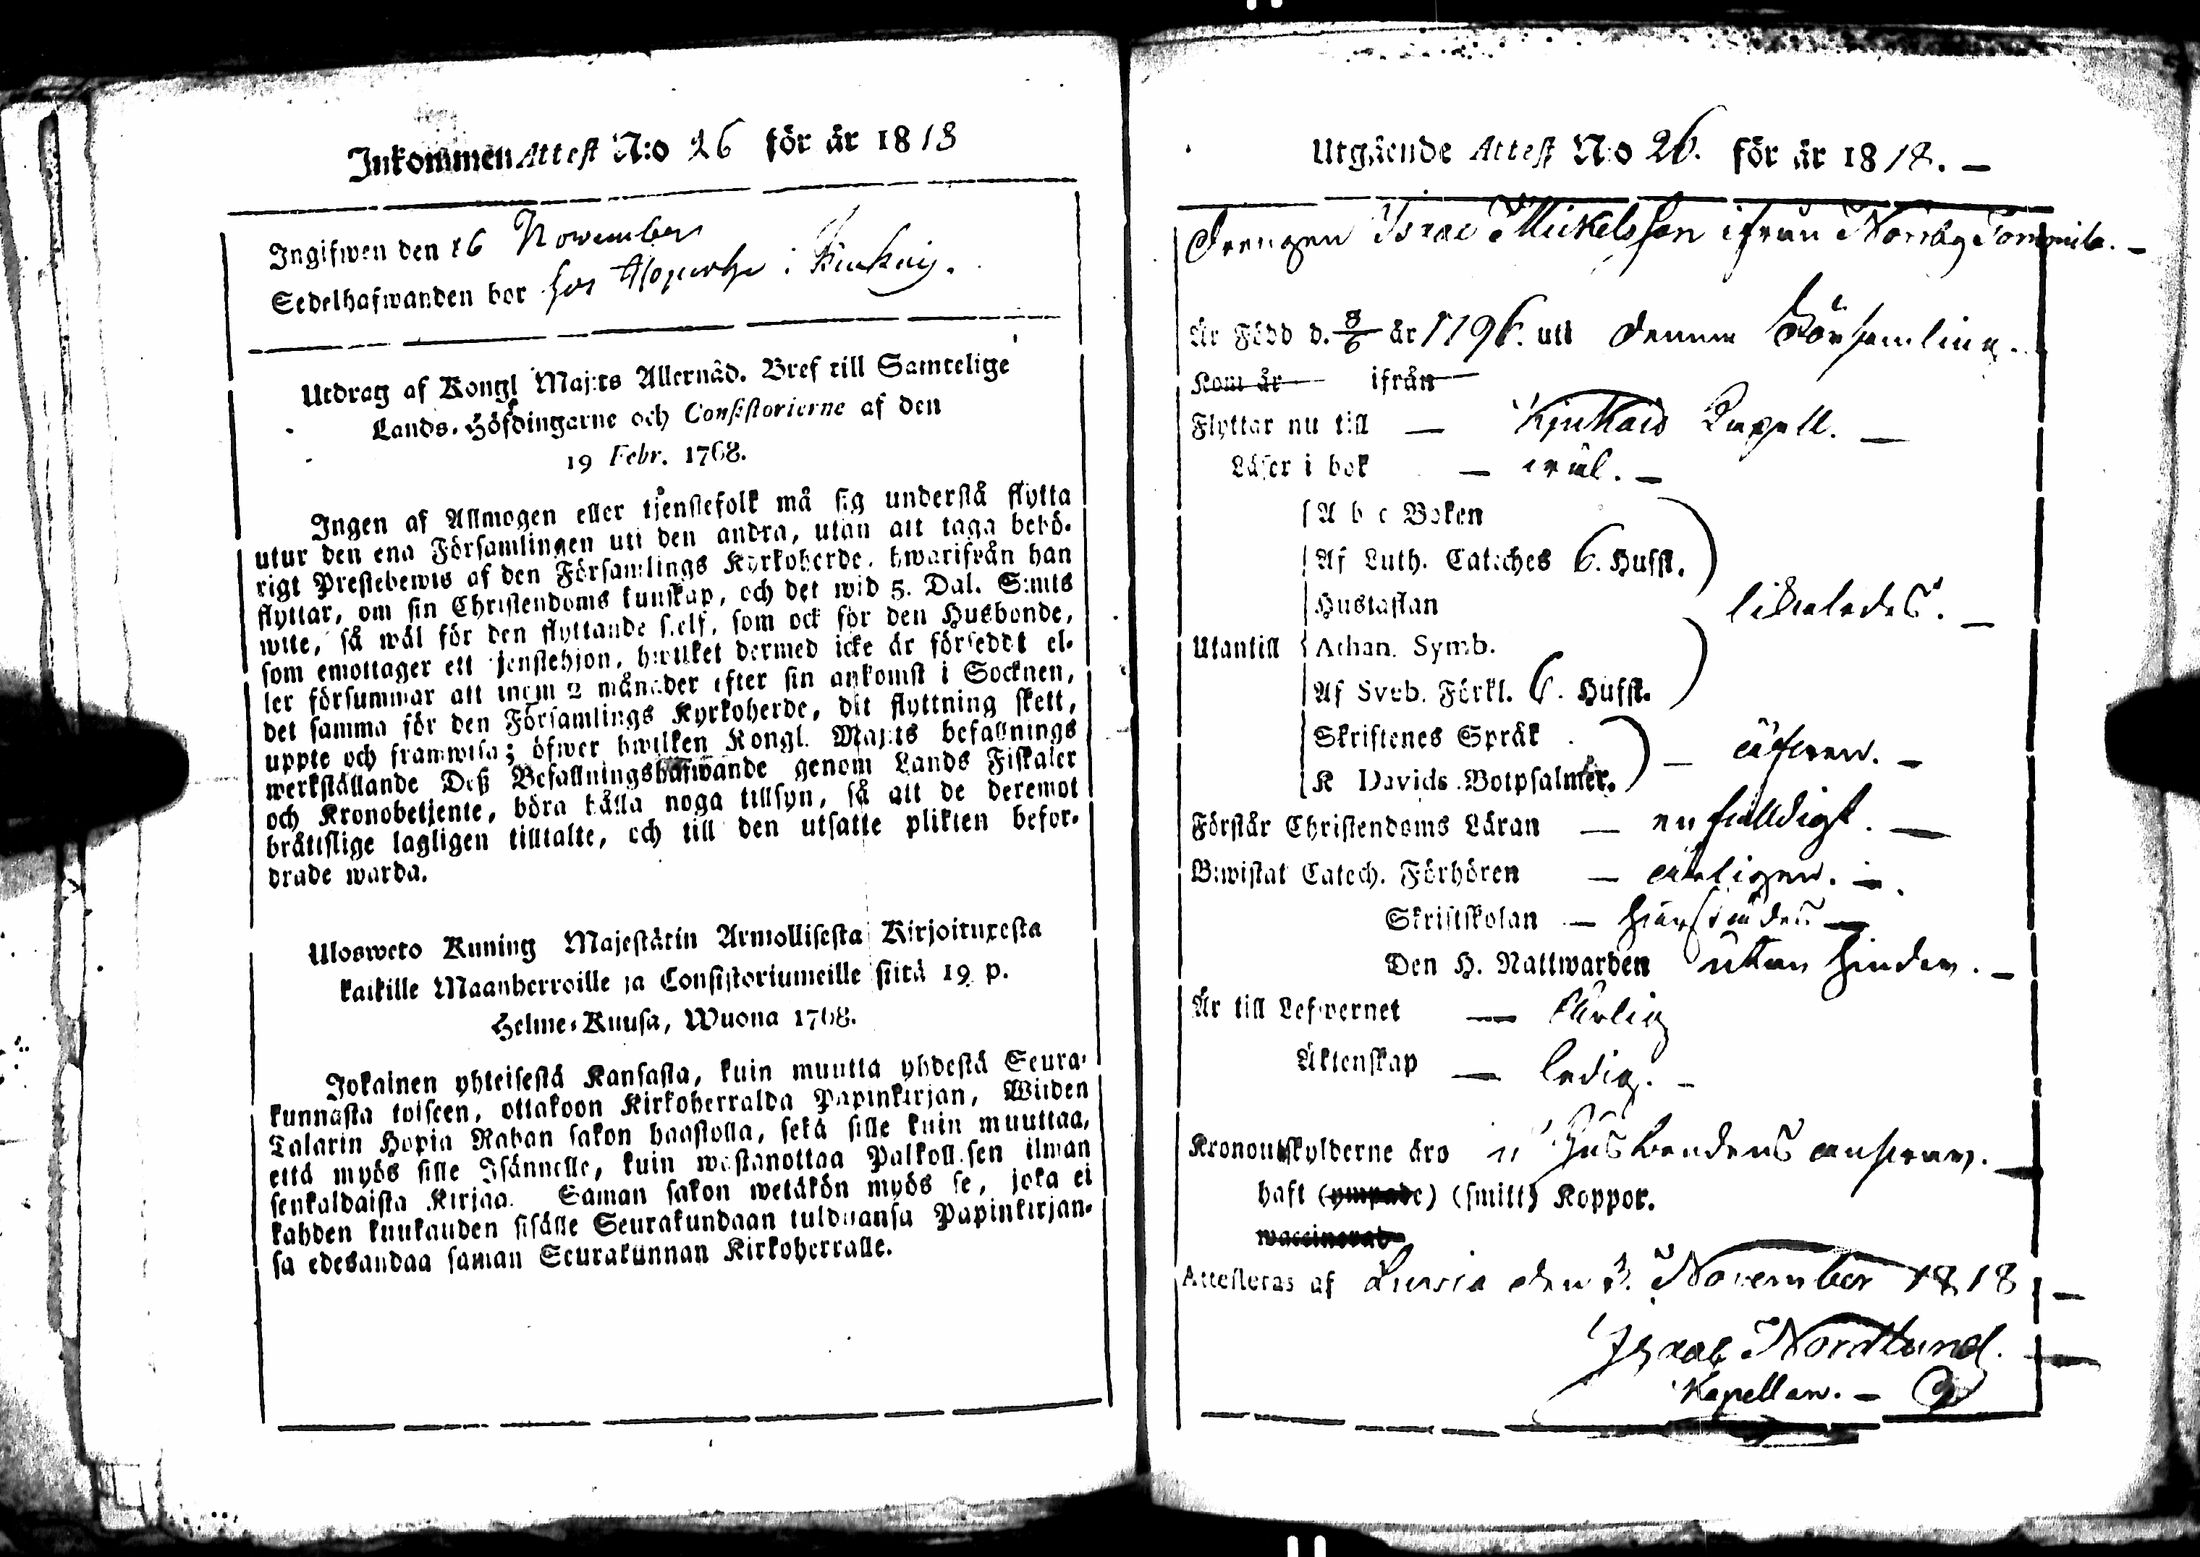 Inkommen Attest N:o 26 för år 1818
Ingifwen den 16 November
Sedelhafwanden bor hos i
Utdrag af Kongl Maj:ts Allernåd. Bref till Samtelige
Lands-Höfdingarne och Consistorierne af den
19 Febr. 1768.
Ingen af Allmogen eller tjenstefolk må sig understå flytta
utur den ena Församlingen uti den andra, utan att taga behö-
rigt Prestebewis af den Församlings Kyrkoherde, hwarifrån han
flyttar, om sin Christendoms kunskap, och det wid 5. Dal. S:mts
wite, så wäl för den flyttande sielf, som ock för den Husbonde,
som emottager ett tjenstehjon, hwilket dermed icke är förseddt el-
ler försummar att inom 2 månader efter sin ankomst i Socknen,
det samma för den Församlings Kyrkoherde, dit flyttning skett,
uppte och framwisa; öfwer hwilken Kongl. Maj:ts befallnings
werkställande Deß Befallningshafwande genom Lands Fiskaler
och Kronobetjente, böra hålla noga tillsyn, så att de deremot
bråttslige lagligen tilltalte, och till den utsatte plikten befor-
drade warda.
Ulosweto Kuning Majestätin Armollisesta Kirjoituxesta
kaikille Maanherroille ja Consistoriumeille siitä 19 p.
Helme-Kuusa, Wuona 1768.
Jokainen yhteisestä Kansasta, kuin muutta yhdestä Seura-
kunnasta toiseen, ottakoon Kirkoherralda Papinkirjan, Wiiden
Talarin Hopia Rahan sakon haastolla, sekä sille kuin muuttaa,
että myös sille Isännelle, kuin wastanottaa Palkollisen ilman
senkaldaista Kirjaa. Saman sakon wetäkön myös se, joka ei
kahden kuukauden sisälle Seurakundaan tulduansa Papinkirjan-
sa edesandaa saman Seurakunnan Kirkoherralle.
Utgående Attest N:o 26. för år 1818. —
Drengen Isaac Mickelsson ifrån Norrby Tommila. —
Är Född d. 8/6 år 1796. uti denna Församling.
Kom år ifrån
Flyttar nu till — Kjukais Capell. —
Läser i bok — wäl. —
A b c Boken
Af Luth. Cateches 6. Hufst.
Hustaflan
likaledes. —
Utantill
Athan. Symb.
Af Sveb. Förkl. 6. Hufst.
Skriftenes Språk
K Davids Botpsalmer.
— äfwen. —
Förstår Christendoms Läran — enfalldigt. —
Biwistat Catech. Förhören — årligen. —
Skriftskolan — härstädes —
Den H. Nattwarden utan hinder. —
Är till Lefwernet — ärlig
Äktenskap — ledig. —
Kronoutskylderne äro i Husbondens answar. —
haft (ympade) (smitt) Koppor.
waccinerad
Attesteras af Luvia den 3. November 1818 —
Isaac Nordlund. —
Kapellan. —